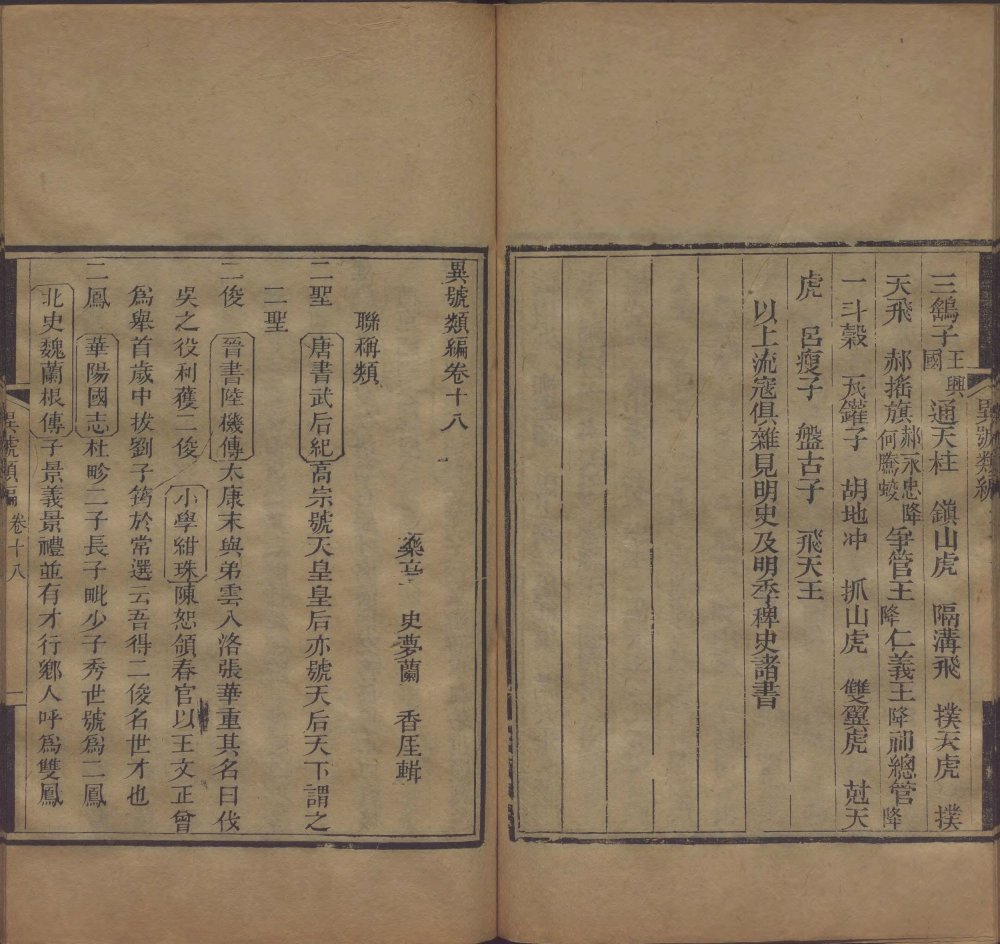 異號類編
三鷂子王興國 通天柱 鎮山虎 隔溝飛 撲天虎 撲
天飛 郝搖旗郝永忠降何騰蛟 爭管王降 仁義王降 祁總管降
一斗穀 瓦罐子 胡地冲 抓山虎 雙翼虎 尅天
虎 呂瘦子 盤古子 飛天王
以上流寇俱雜見明史及明季稗史諸書
異號類編卷十八
樂亭 史夢蘭 香厓輯
聯稱類
二聖 唐書武后紀高宗號天皇皇后亦號天后天下謂之
二聖
二俊 晉書陸機傳太康末與弟雲入洛張華重其名曰伐
吳之役利獲二俊 小學紺珠陳恕領春官以王文正曾
爲舉首歲中拔劉子筠於常選云吾得二俊名世才也
二鳳 華陽國志杜畛二子長子毗少子秀世號爲二鳳
北史魏蘭根傳子景義景禮並有才行鄉人呼爲雙鳳
異號類編 卷十八 一